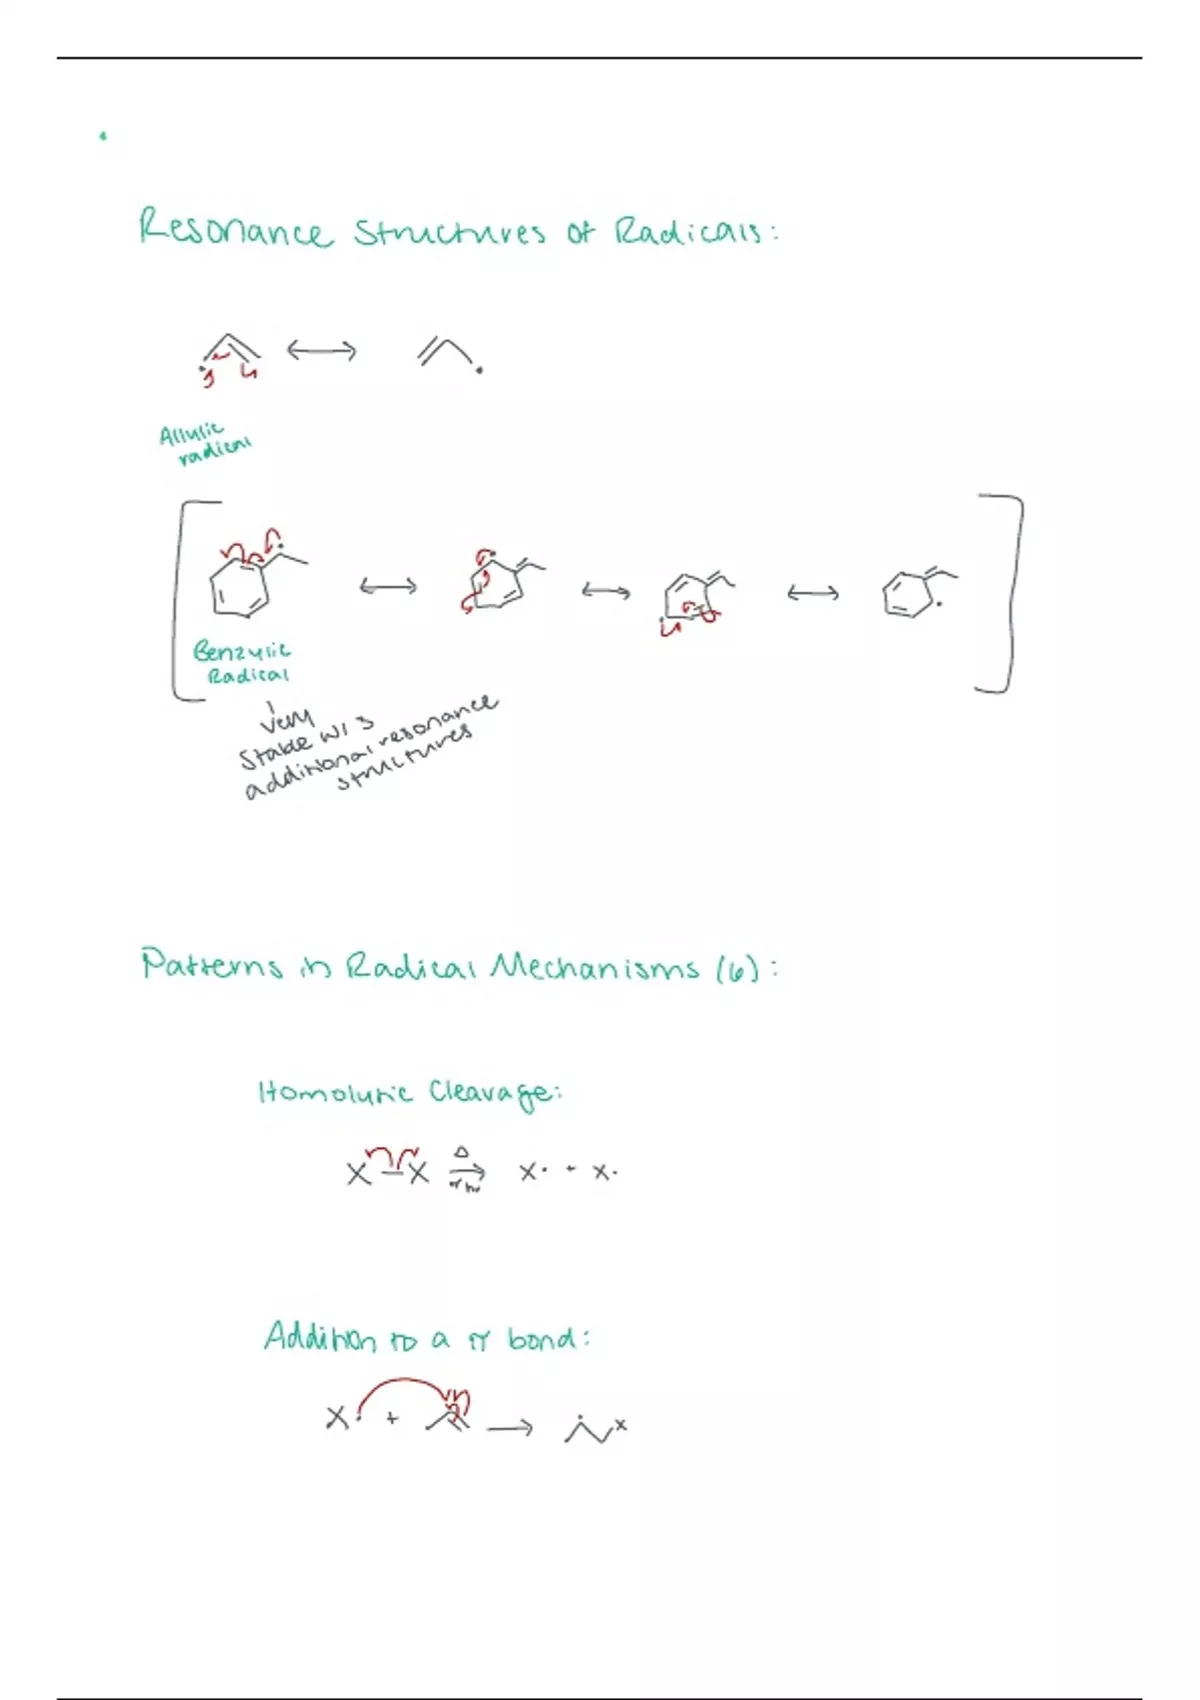 Resonance Structures of Radicals:
Allylic
radical
Benzylic
Radical
very
Stable w/ 3
additional resonance
structures
Patterns in Radical Mechanisms (6):
Homolytic Cleavage:
X–X Δ or hν X· + X·
Addition to a π bond:
X· + → X